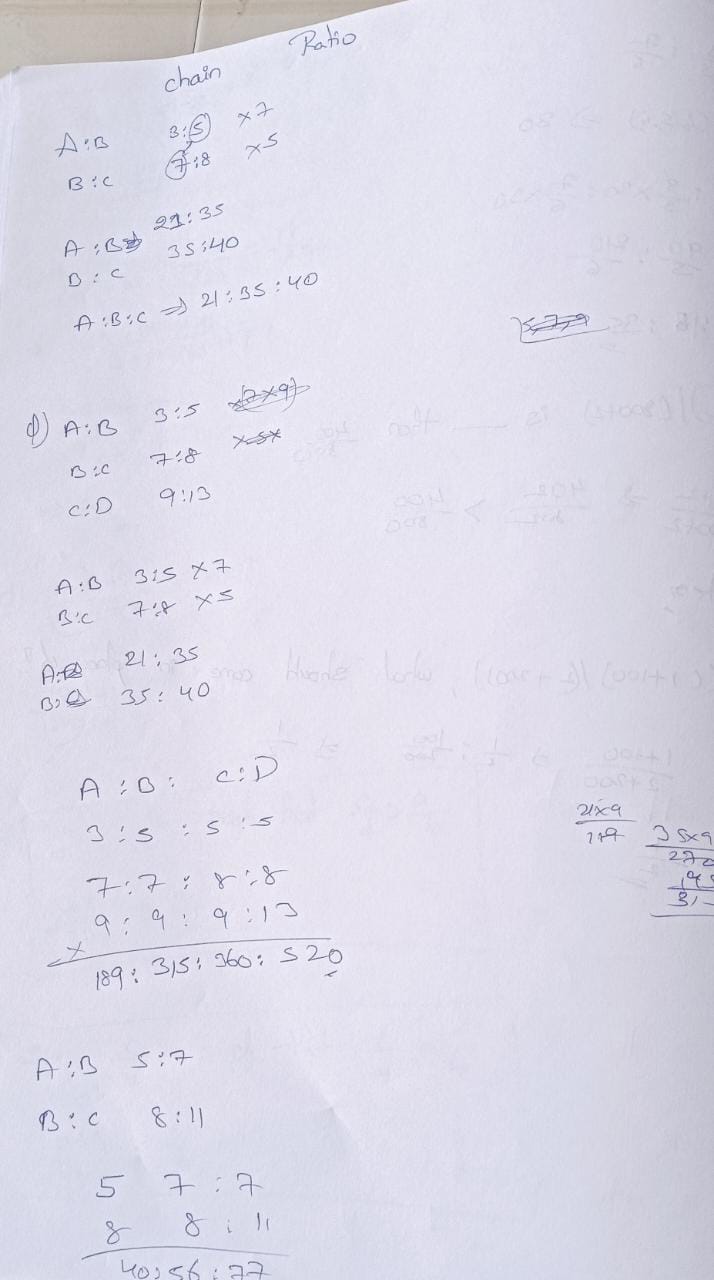 Ratio
chain
A:B 3:5 x7
B:C 7:8 x5
A:B 21:35
B:C 35:40
A:B:C ⇒ 21:35:40
A:B 3:5
B:C 7:8
C:D 9:13
A:B 3:5 x7
B:C 7:8 x5
A:B 21:35
B:C 35:40
A:B: C:D
3:5:5:5
7:7:8:8
9:9:9:13
x
189:315:360:520
21x9
189
35x9
270
A:B 5:7
B:C 8:11
5 7:7
8 8:11
40:56:77